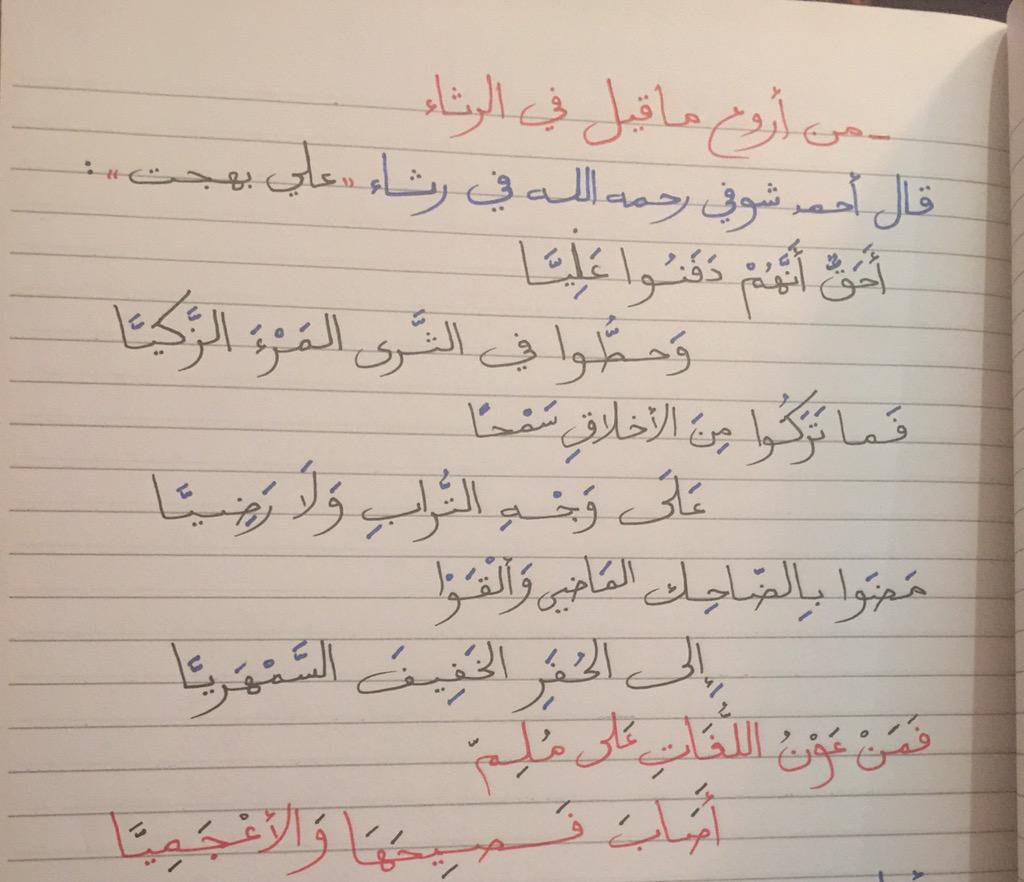 ـ من أروع ما قيل في الرثاء
قال أحمد شوقي رحمه الله في رثاء "علي بهجت" :
أَحَقٌّ أَنَّهُمْ دَفَنُوا عَلِيَّا
وَحطُّوا في الثَّرى المَرْءَ الزَّكيَّا
فَما تَرَكُوا مِنَ الأخلاقِ سَمْحًا
عَلَى وَجْهِ التُّرابِ وَلَا رَضِيَّا
مَضَوا بِالضَّاحِك المَاضي وَألْقَوْا
إِلى الحُفَرِ الخَفِيفَ السَّمْهَرِيَّا
فَمَنْ عَوْنُ اللُّغَاتِ عَلى مُلِمّ
أَصَابَ فَصِيحَهَا وَالأعْجَمِيَّا